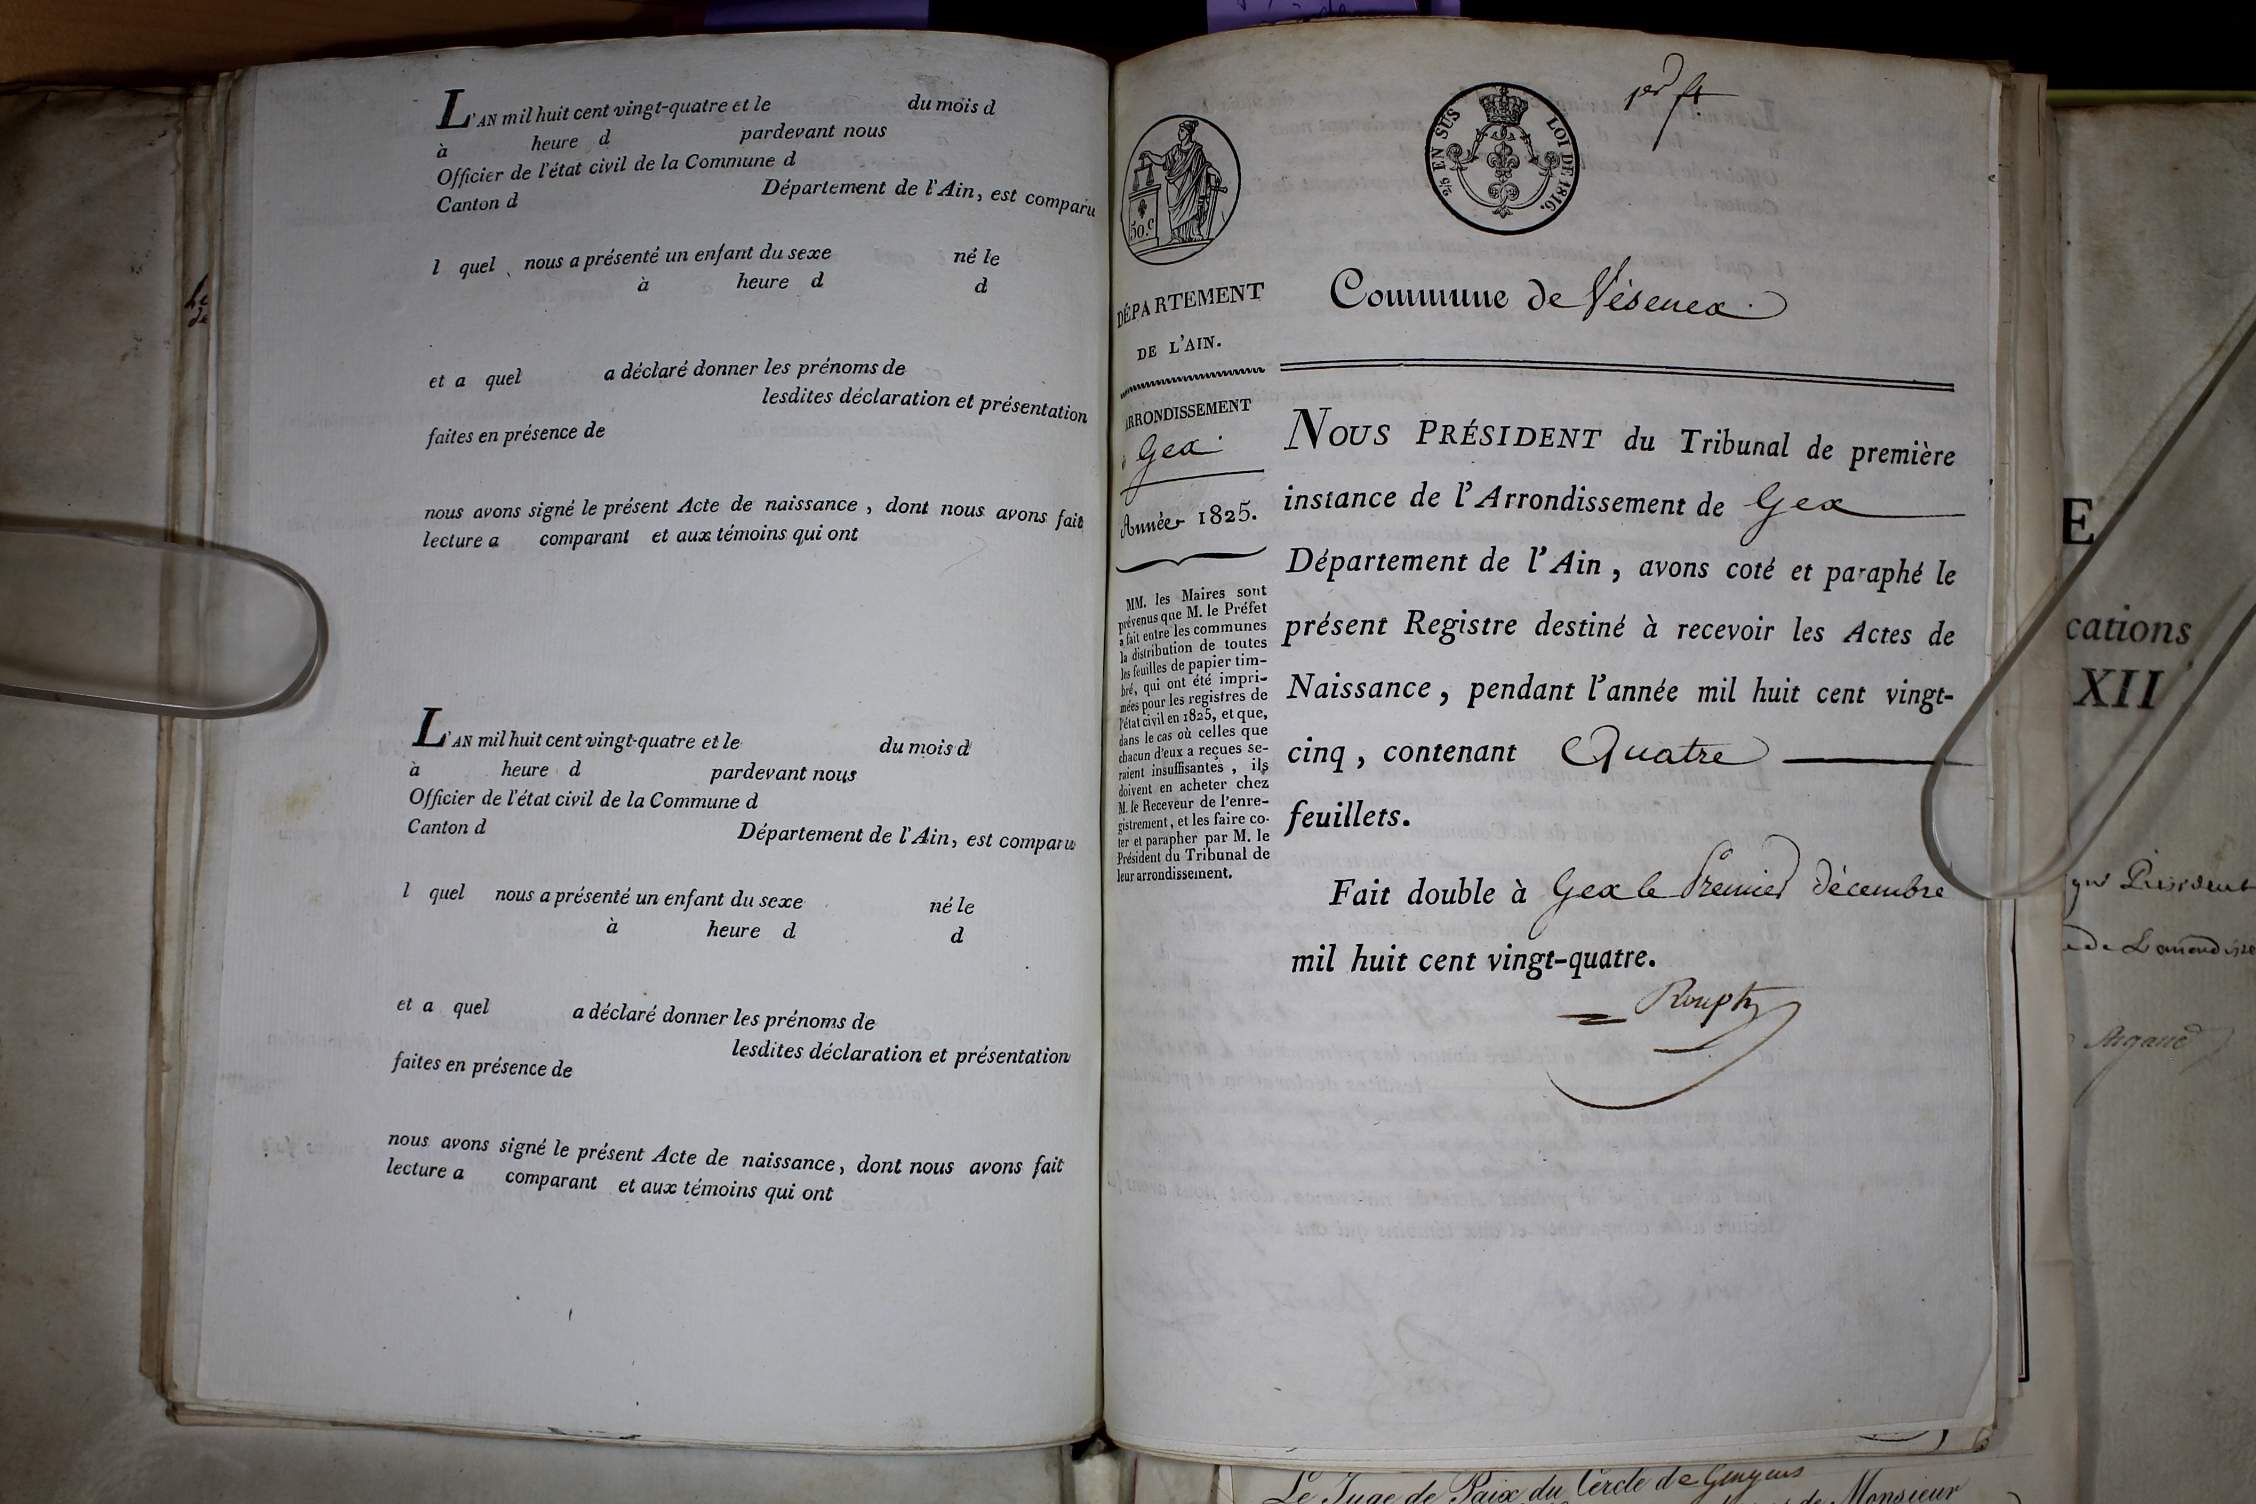 L'AN mil huit cent vingt-quatre et le du mois d
à heure d pardevant nous
Officier de l'état civil de la Commune d
Canton d Département de l'Ain, est comparu
l quel nous a présenté un enfant du sexe né le
à heure d d
et a quel a déclaré donner les prénoms de
lesdites déclaration et présentation
faites en présence de
nous avons signé le présent Acte de naissance, dont nous avons fait
lecture a comparant et aux témoins qui ont
L'AN mil huit cent vingt-quatre et le du mois d
à heure d pardevant nous
Officier de l'état civil de la Commune d
Canton d Département de l'Ain, est comparu
l quel nous a présenté un enfant du sexe né le
à heure d d
et a quel a déclaré donner les prénoms de
lesdites déclaration et présentation
faites en présence de
nous avons signé le présent Acte de naissance, dont nous avons fait
lecture a comparant et aux témoins qui ont
1er ft
50.c
2/5 EN SUS LOI DE 1816.
DÉPARTEMENT
DE L'AIN.
ARRONDISSEMENT
Gex
Année 1825.
MM. les Maires sont
prévenus que M. le Préfet
a fait entre les communes
la distribution de toutes
les feuilles de papier tim-
bré, qui ont été impri-
mées pour les registres de
l'état civil en 1825, et que,
dans le cas où celles que
chacun d'eux a reçues se-
raient insuffisantes, ils
doivent en acheter chez
M. le Receveur de l'enre-
gistrement, et les faire co-
ter et parapher par M. le
Président du Tribunal de
leur arrondissement.
Commune de Vésenex.
NOUS PRÉSIDENT du Tribunal de première
instance de l'Arrondissement de Gex
Département de l'Ain, avons coté et paraphé le
présent Registre destiné à recevoir les Actes de
Naissance, pendant l'année mil huit cent vingt-
cinq, contenant Quatre
feuillets.
Fait double à Gex le Premier décembre
mil huit cent vingt-quatre.
Rouph
E
cations
XII
Président
Argand
Le Juge de Paix du Cercle de
de Monsieur